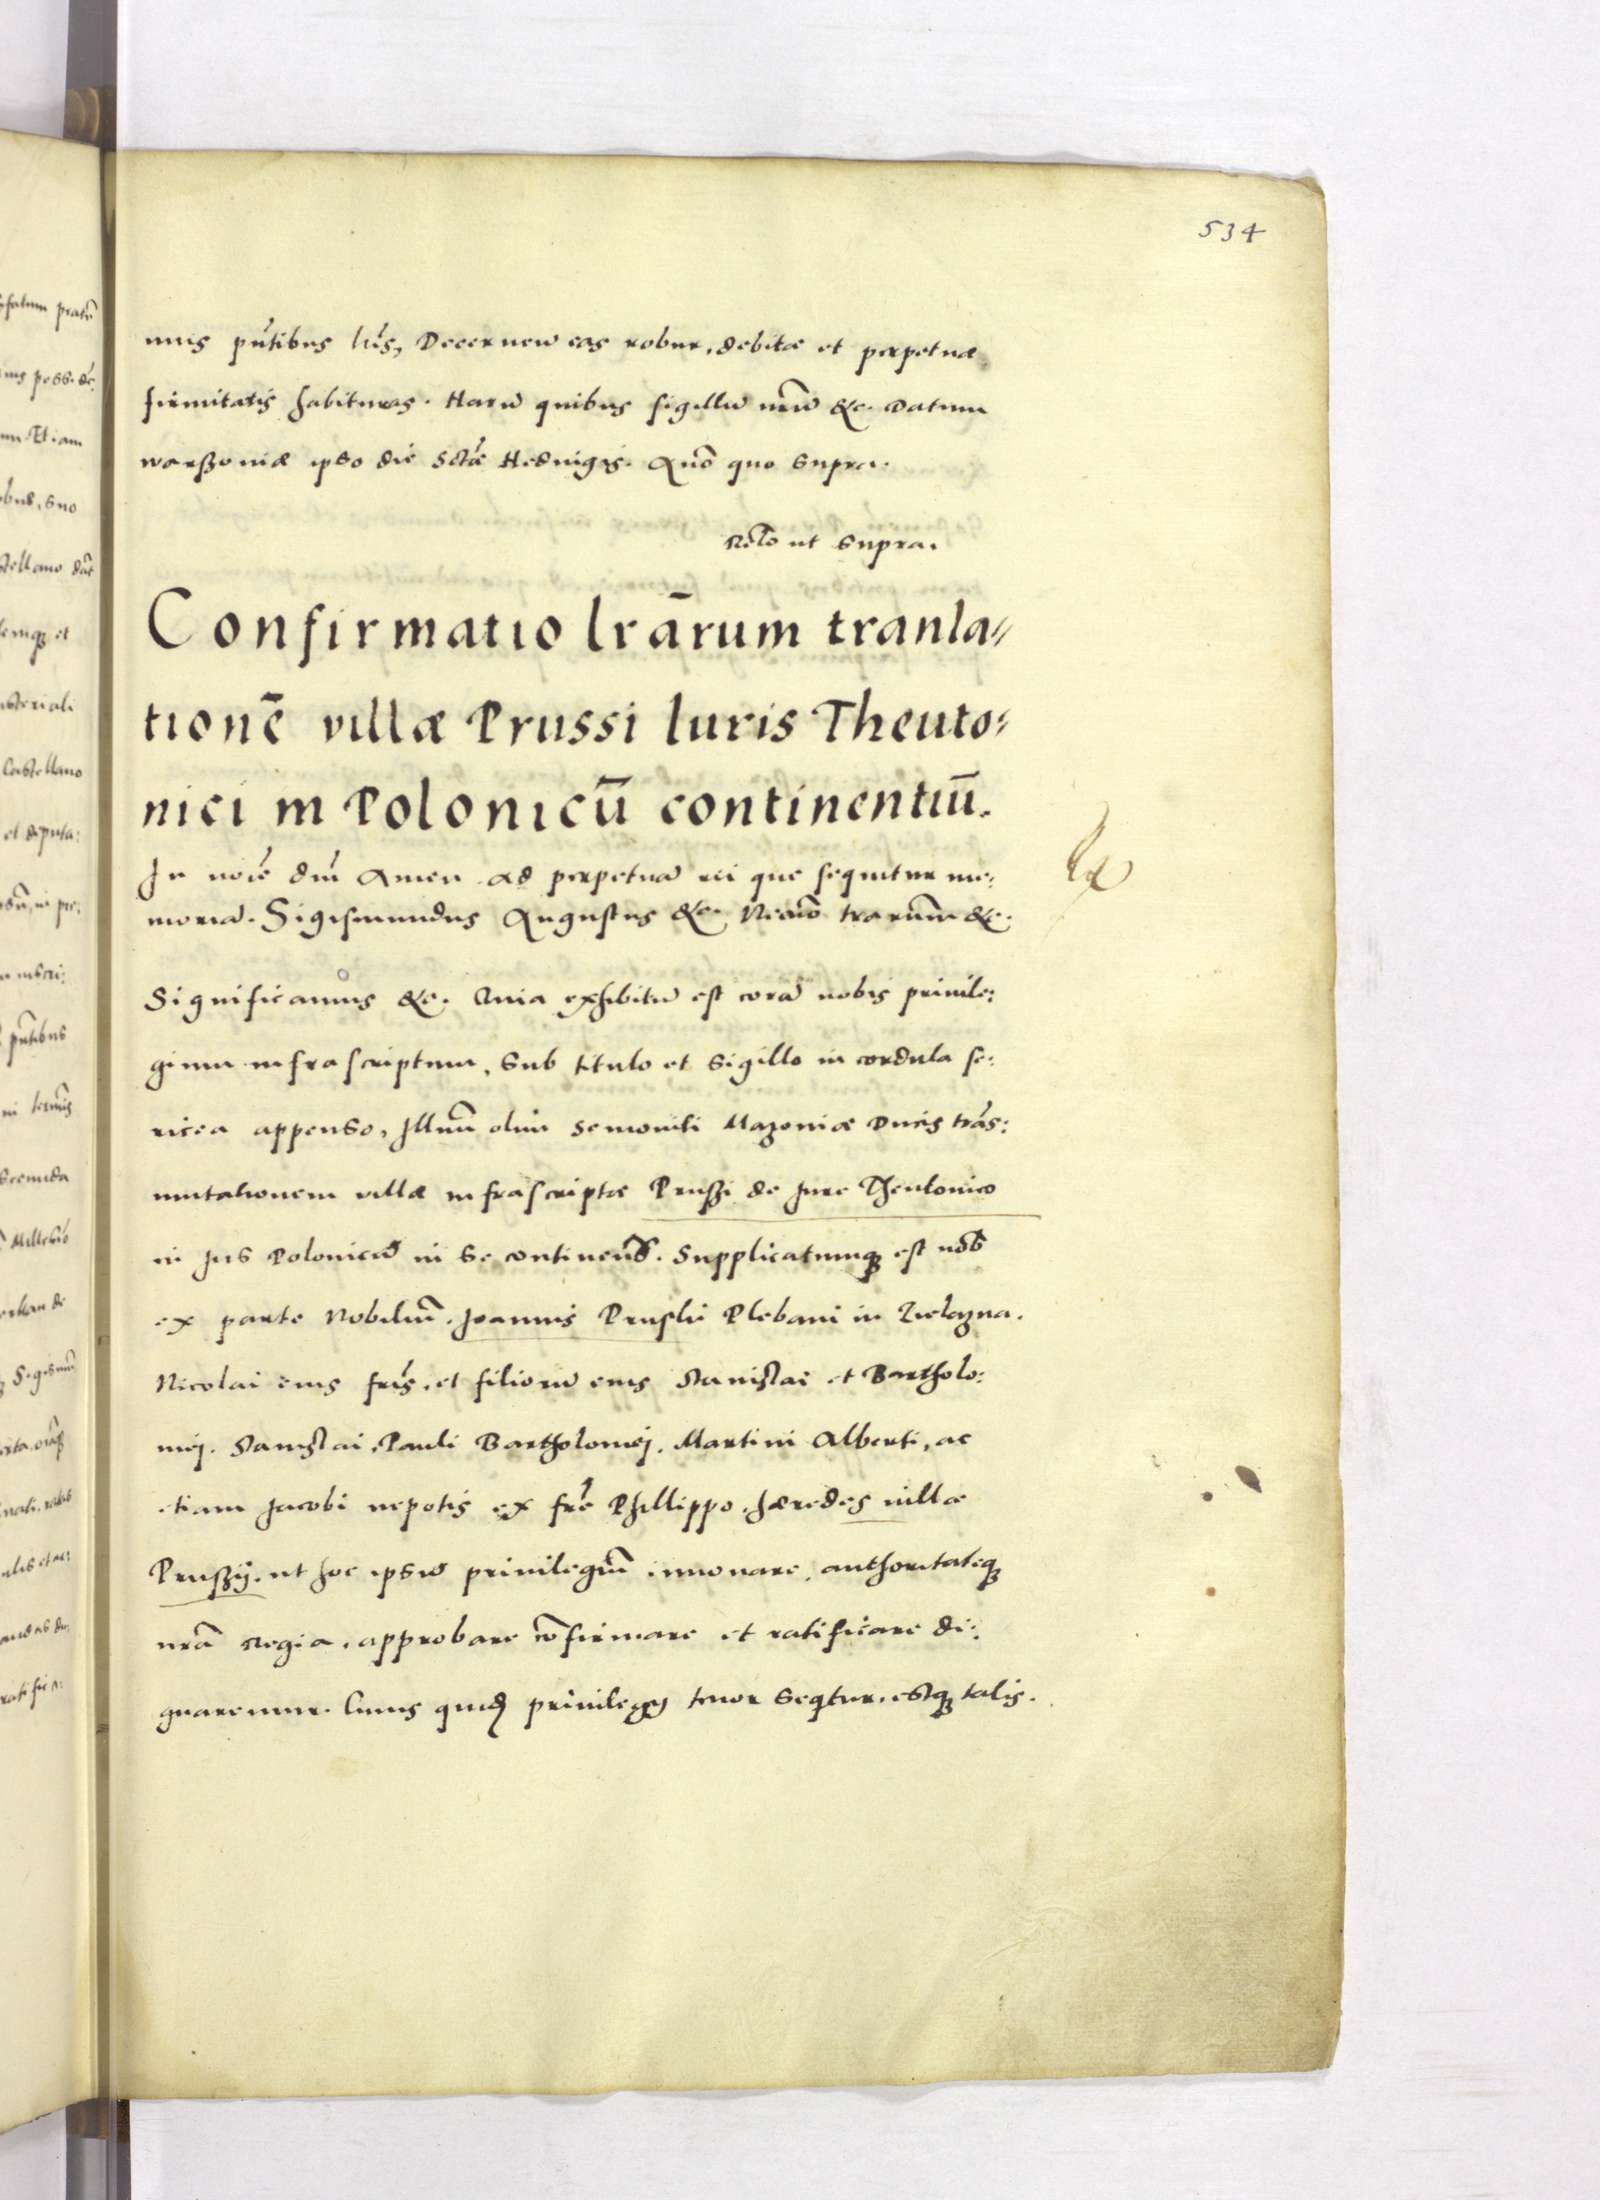 534
mus pn̄tibus lrīs, Decernen̄ eas robur, debitæ et perpetuæ
firmitatis habituras. Harū quibus sigillū nrūm &c. Datum
warßouiæ ipso die Sctæ Heduigis. Anō quo supra.
Relō ut supra.
Confirmatio lrārum tranla=
tionē villæ Prussi Iuris Theuto=
nici in Polonicū continentiū.
In noīe dnī Amen ad perpetuā rei que sequitur me:
moriā. Sigismundus Augustus &c.
Significamus &c. Quia exhibitū est corā nobis priuile:
gium infrascriptum, sub titulo et sigillo in cordula se:
ricea appenso, Illum olim Semouiti Mazouiæ Ducis trās:
mutationem villæ infrascriptæ Prussi de Jure Theutonico
in Jus Polonicū in se continens. Supplicatumq3 est nob
ex parte Nobilium. Joannis Pruski Plebani in Zielazna.
Nicolai eius fris, et filiorū eius Stanislai et Bartholo:
mej. Stanislai, Pauli Bartholomej. Martini Alberti, ac
etiam Jacobi nepotis ex frē Phillippo. hæredes villæ
Prußÿ. ut hoc ipsū priuilegiūm innouare, authoritateq3
nrā Regia, approbare cōfirmare et ratificare di:
gnaremur. Cuius quid priuilegÿ tenor seqtur, estq3 talis.